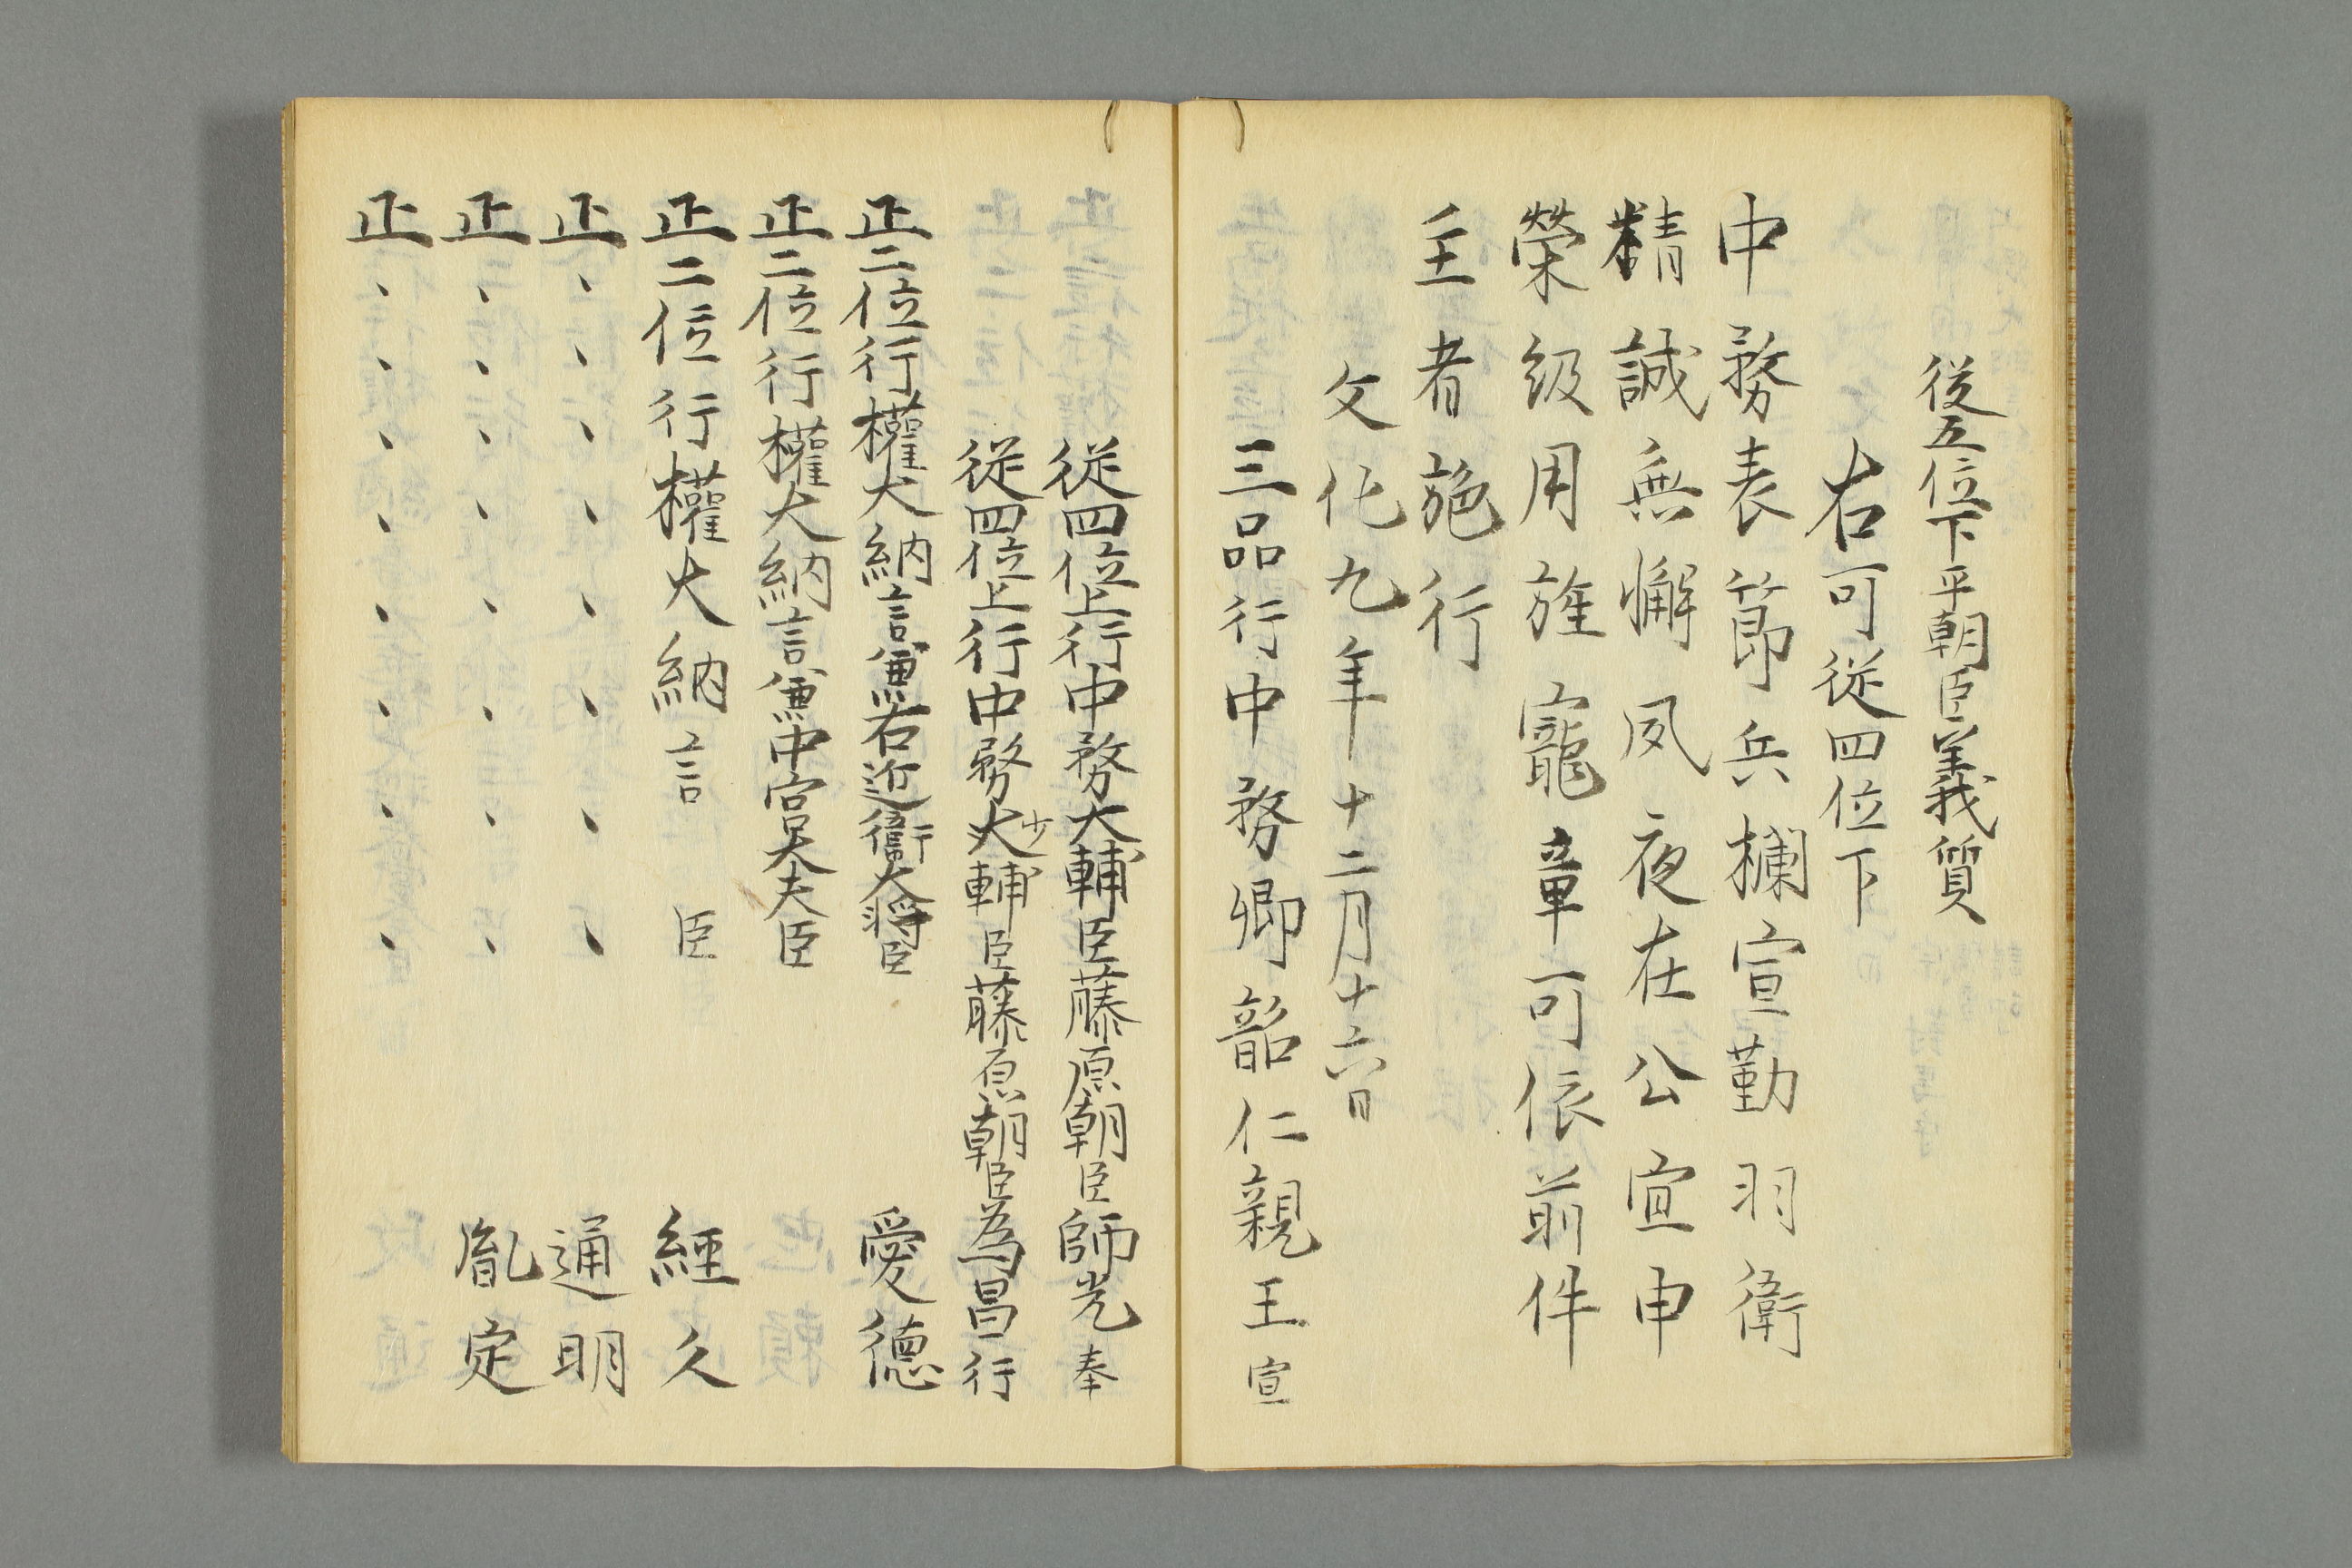 従五位下平朝臣義質
右可従四位下
中務表節兵欄宣勤羽衛
精誠無懈夙夜在公宜申
榮級用旌寵章可依前件
主者施行
文化九年十二月十六日
三品行中務卿韶仁親王宣
従四位上行中務大輔臣藤原朝臣師光奉
従四位上行中務大少輔臣藤原朝臣為昌行
正二位行權大納言兼右近衛大将臣 愛德
正二位行權大納言兼中宮大夫臣
正二位行權大納言 臣 經久
正、、、、、、、、 通明
正、、、、、、、、 胤定
正、、、、、、、、